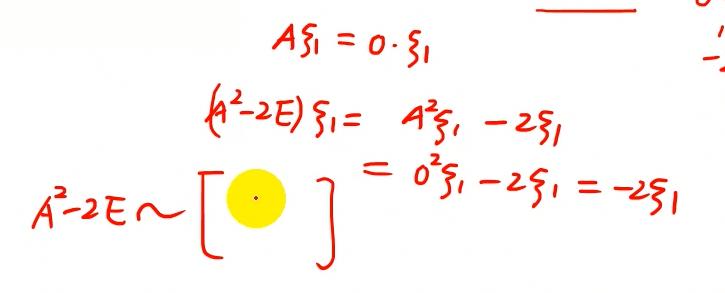 Aξ₁ = 0·ξ₁
(A²-2E)ξ₁ = A²ξ₁ - 2ξ₁
= 0²ξ₁ - 2ξ₁ = -2ξ₁
A²-2E ~ [ ]